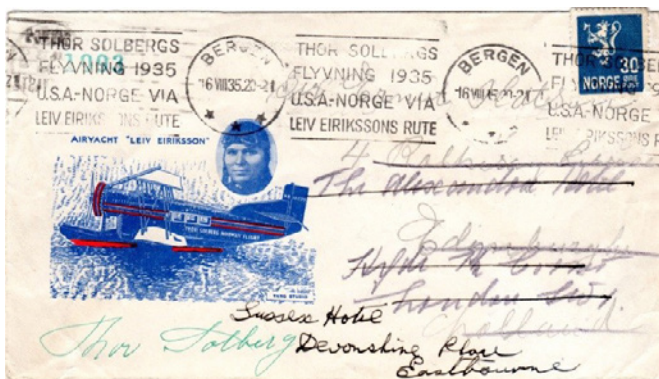 THOR SOLBERGS
FLYVNING 1935
U.S.A-NORGE VIA
LEIV EIRIKSSONS RUTE
BERGEN
16 VIII 35.20-21
THOR SOLBERGS
FLYVNING 1935
U.S.A-NORGE VIA
LEIV EIRIKSSONS RUTE
BERGEN
THOR SOLBERGS
U.S.A-NORGE
LEIV EIRIKSSONS R
30
NORGE
AIRYACHT "LEIV EIRIKSSON"
4
The Alexandra Hotel
Edinburgh
Hyde Pk Corner
London
Sussex Hotel
Devonshire Place
Eastbourne
Thor Solberg